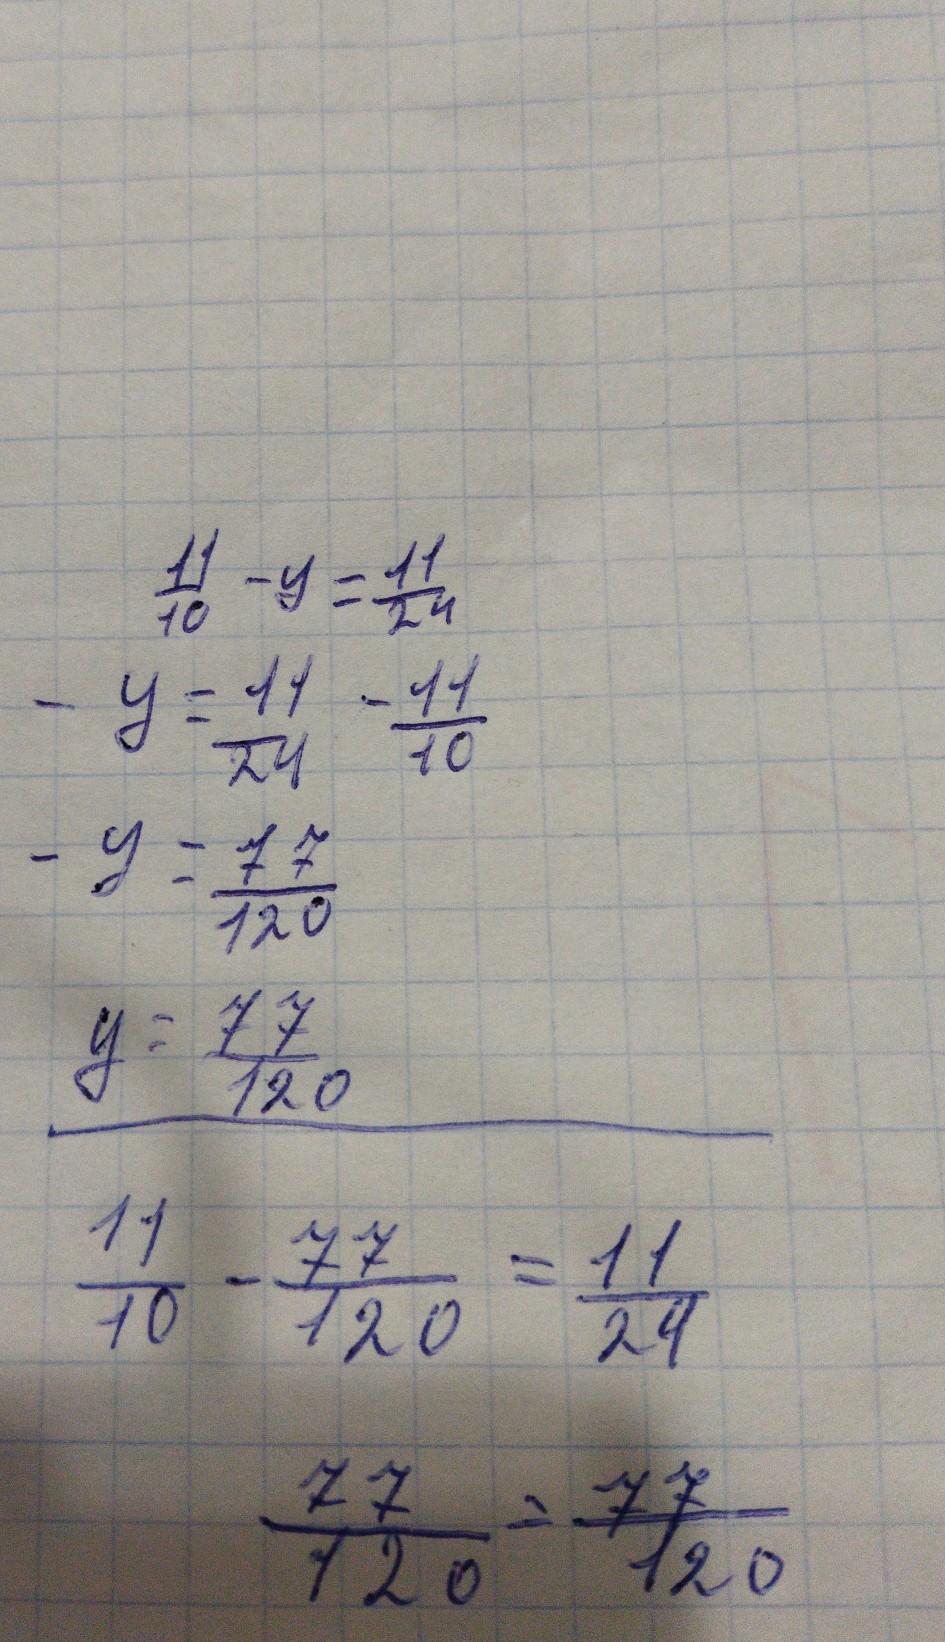 11/10 - y = 11/24
- y = 11/24 - 11/10
- y = 77/120
y = 77/120
11/10 - 77/120 = 11/24
77/120 = 77/120